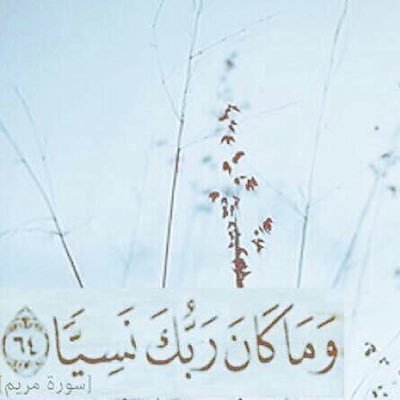 وَمَا كَانَ رَبُّكَ نَسِيًّا ٦٤
[سورة مريم]